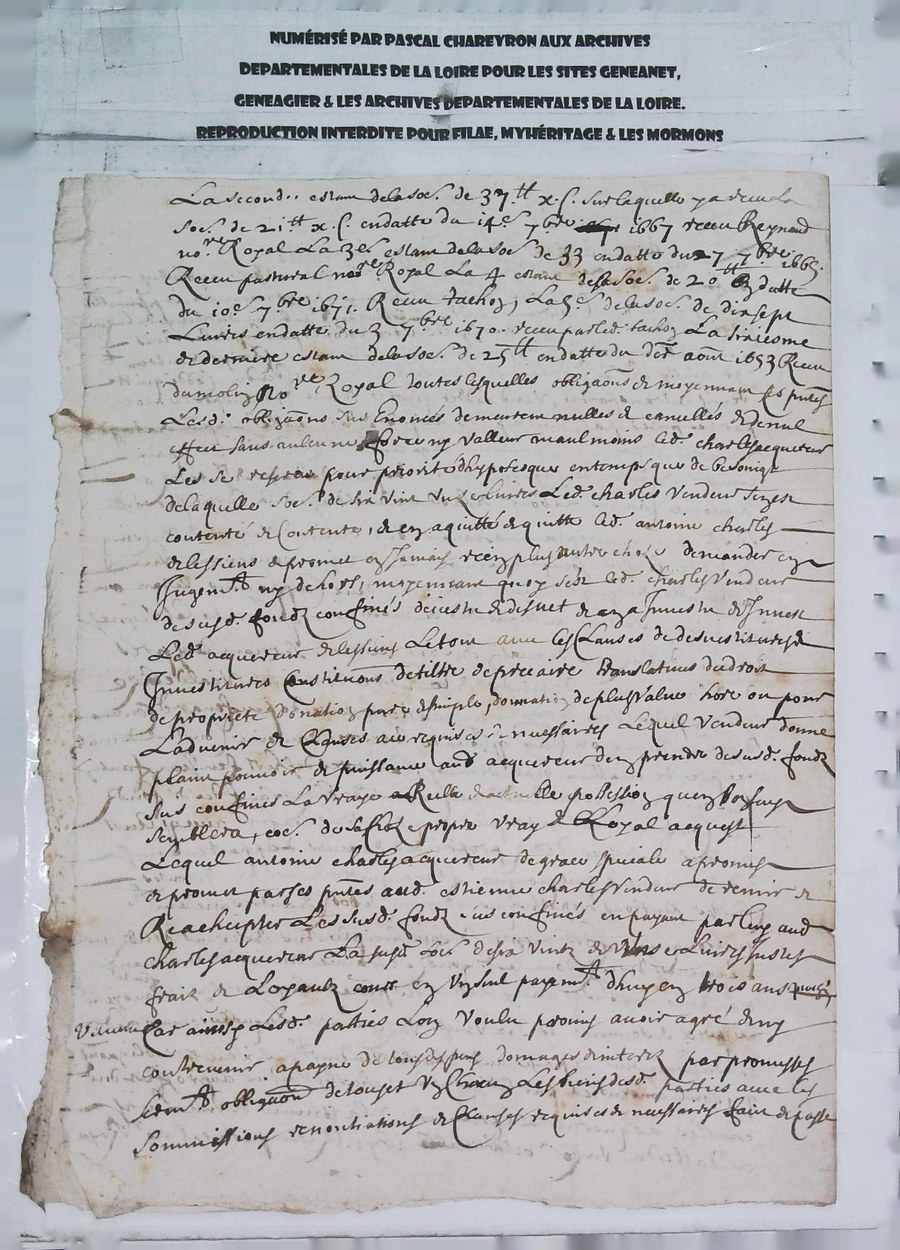 NUMÉRISÉ PAR PASCAL CHAREYRON AUX ARCHIVES
DEPARTEMENTALES DE LA LOIRE POUR LES SITES GENEANET,
GENEAGIER & LES ARCHIVES DEPARTEMENTALES DE LA LOIRE.
REPRODUCTION INTERDITE POUR FILAE, MYHÉRITAGE & LES MORMONS
La second. estant dela soe. de 37 tt x s. sur laquelle y a receu la
soe. de 21 tt x s. en datte du 14e 7bre 1667 receu Reynaud
nore Royal La 3e estant dela soe de 33 en datte du 27 7bre
Receu pastural nore Royal La 4 estant de la soe. de 20 tt en datte
du 10e 7bre 1671. Receu tachoz, La 5e dela soe. de dix sept
Livres en datte du 3 7bre 1670. receu par led. tachoz La sixiesme
et derniere estant dela soe. de 25 tt en datte du aoust 1653 Receu
dumolin nore Royal toutes lesquelles obligaons et moyennant ses pntes
Lesd. obligaons sus Enoncés demeurent nulles et cancellés et de nul
effect sans aulcune force ny valleur neaulmoins led. charles acquereur
Les se reserve pour priorité d'hypoteque en temps que de besoing
de laquelle soe. de six vint une Livres Led. charles vendeur s'en est
contenté et contente, et en a quitté et quitte led. antoine charles
et les siens et promet n'en jamais rien plus autre chose demander en
Jugemt. ny dehors, moyennant quoy s'est led. charles vendeur
desusd. fondz confinés deiestu et desuet et en a Inuestu et Inuest
Led. acquereur et les siens Le tout auec les clauses de desuestitures et
Inuestitures constituons de tiltre de precaire translations de droit
de propriete donation pure et simple, donation de plus value hore ou pour
L'aduenir et clauses au requises et necessaires Lequel vendeur donne
plain pouuoir et puissance aud acquereur d'en prendre desusd. fondz
sus confines La vraye Reelle et actuelle possession quen bon luy
semblera, coe. de sa chose propre vray et Loyal acquest
Lequel antoine charles acquereur de grace speciale a promis
et promet par ses pntes aud. estienne charles vendeur de venir et
Reachepter Les susd. fondz sus confinés en payant par luy aud
charles acquereur La susd. soe. de six vintz et vne Livres justes
frais et Loyaulx coustz en vn seul payemt. d'huy en trois ans
Car ainsy Lesd. parties Lon voulu promis auoir agré et ny
contreuenir a payne de tous despens domages et interetz par promesses
sermt. obligaon de tous et vn chun Les biens desd. parties auec les
sommissions renontiations et clauses requises et necessaires faict et passé